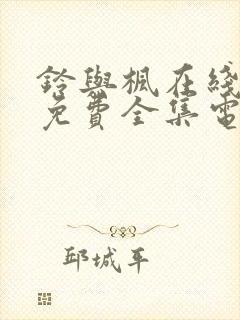 鈴與楓在綫
免費全集電
邱城平